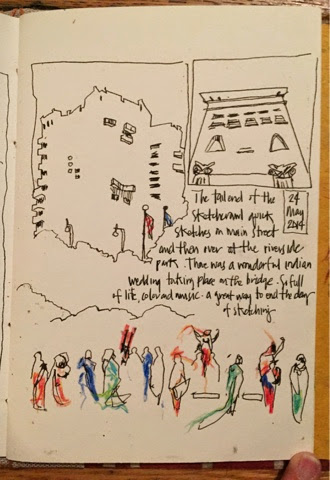 The tail end of the
sketchcrawl quick
sketches on main street
and then over at the riverside
park. There was a wonderful indian
wedding taking place on the bridge. So full
of life, color and music. a great way to end the day
of sketching.
24
May
2014